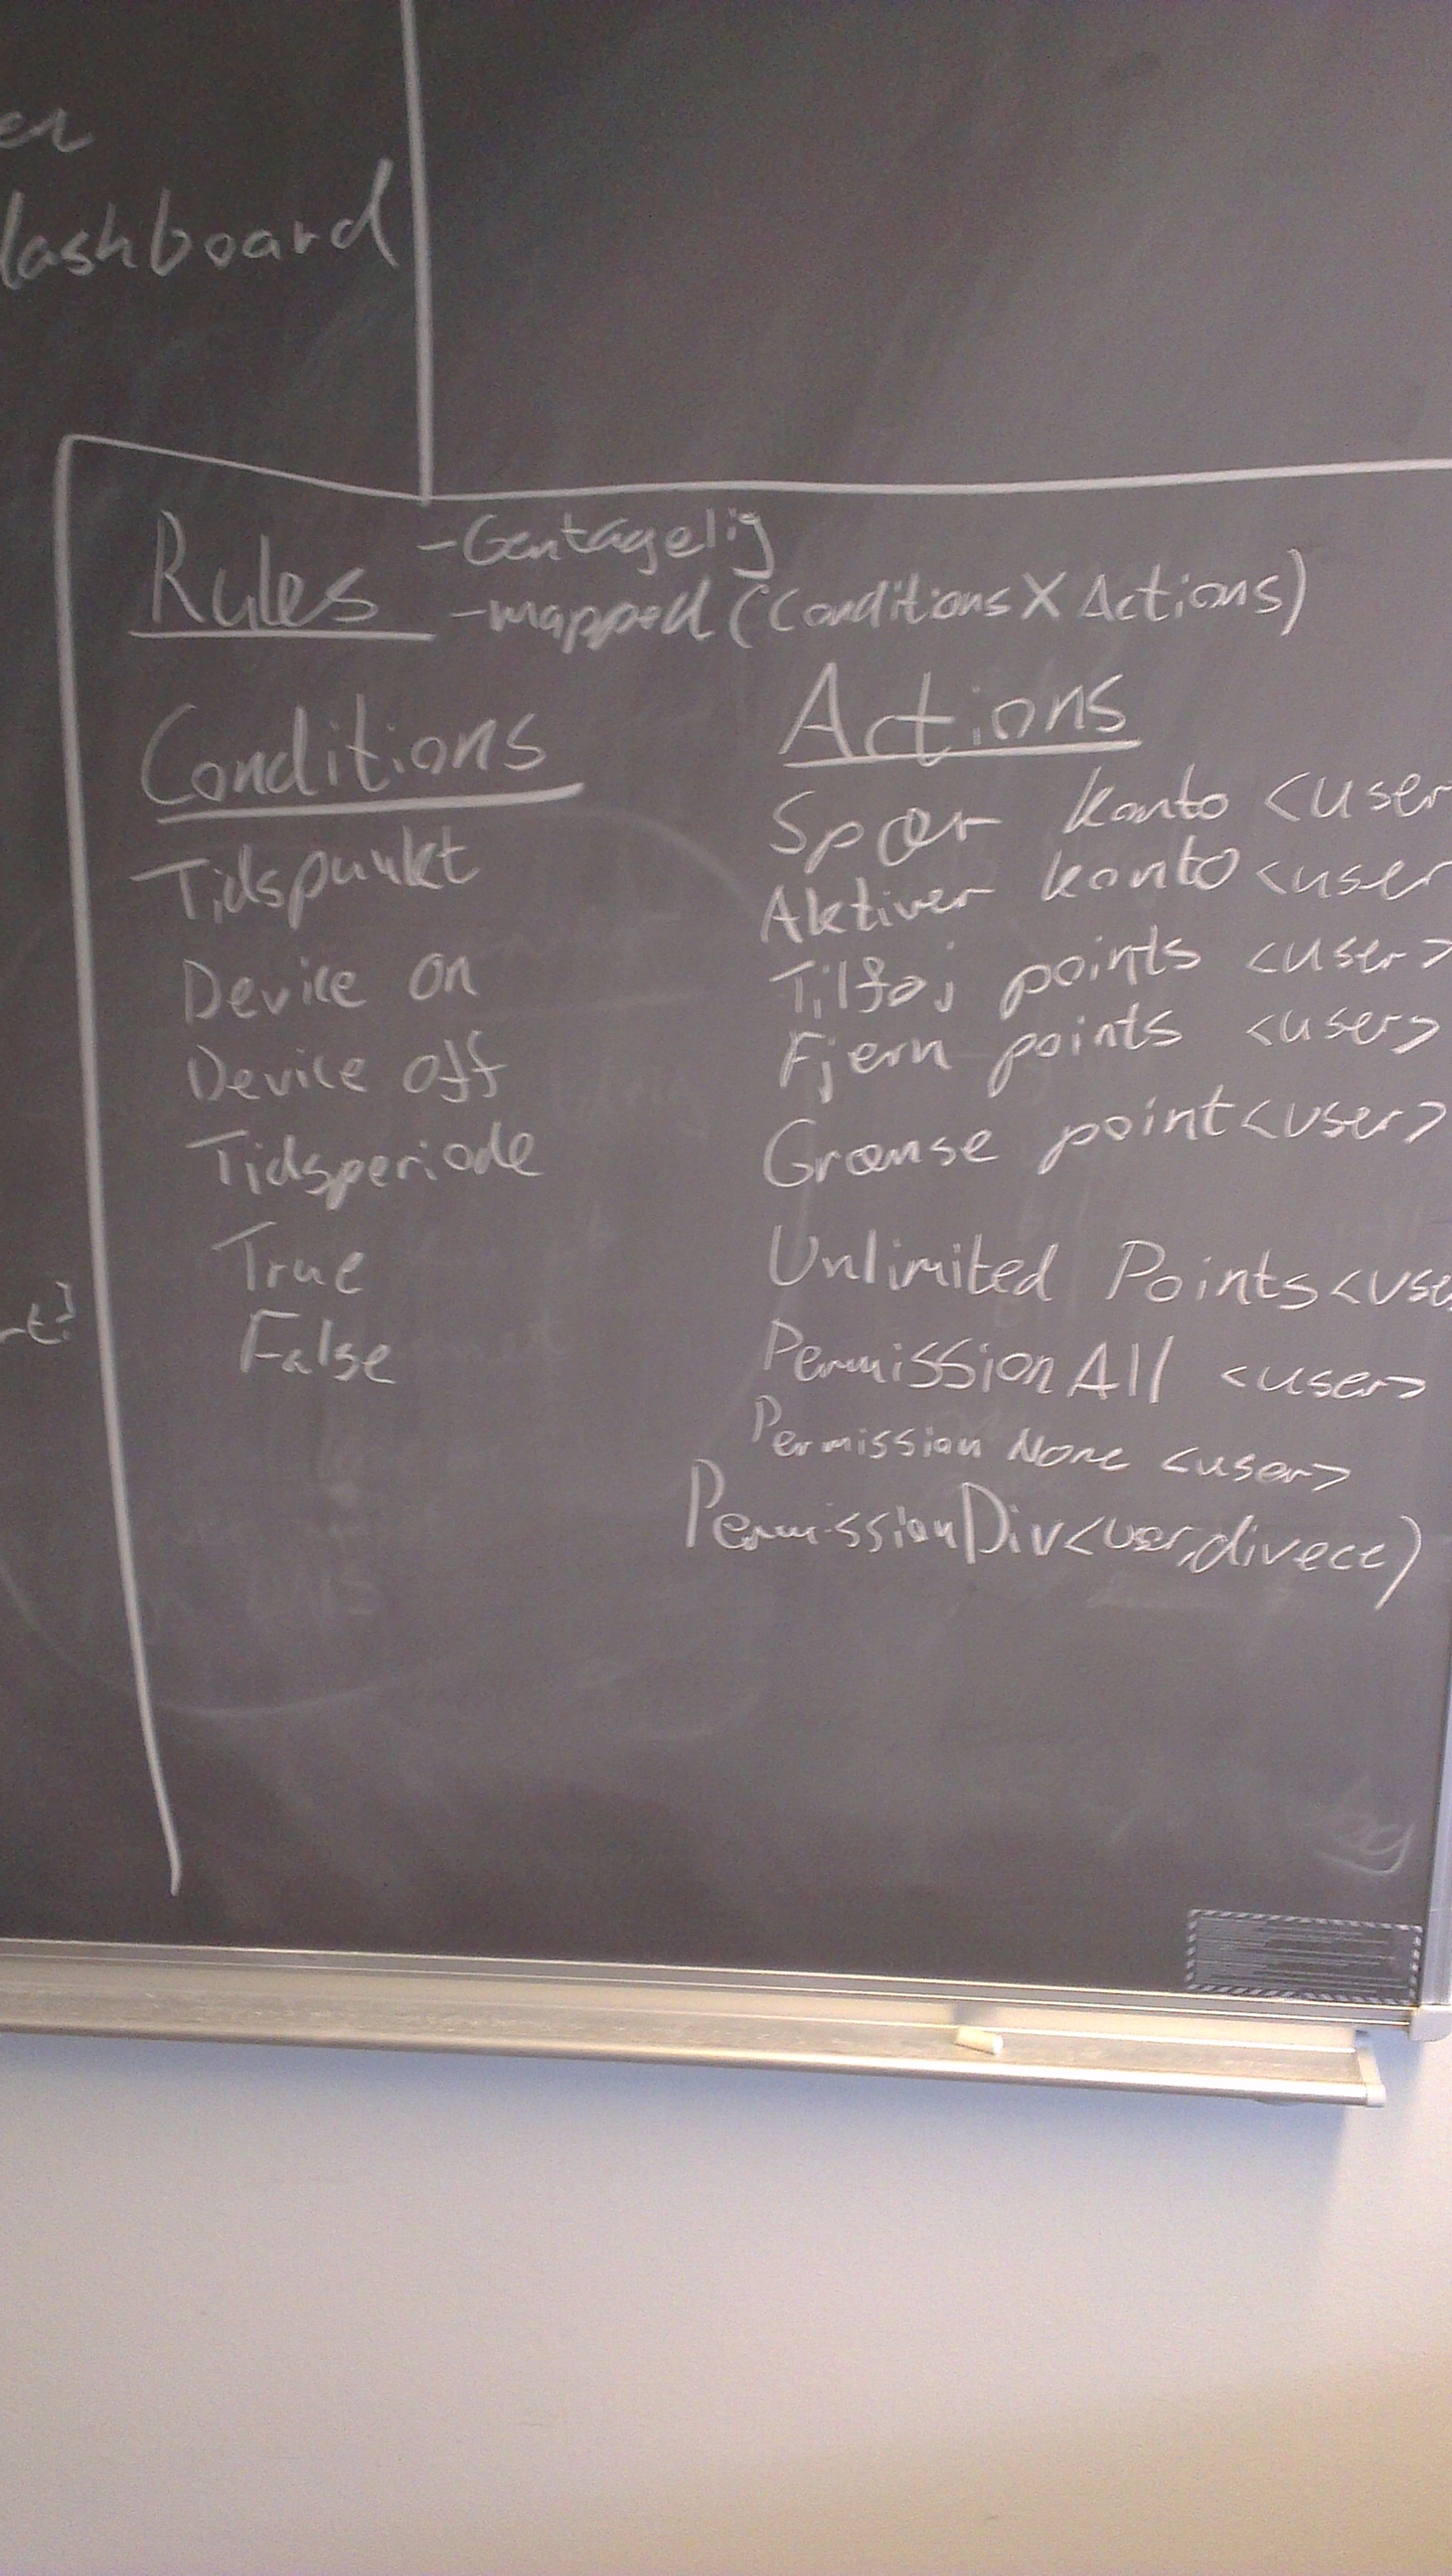 er
lashboard
Rules
-Gentagelig
-mapped (Conditions X Actions)
Conditions
Tidspunkt
Device on
Device off
Tidsperiode
True
False
Actions
Spær konto <user
Aktiver konto <user
Tilføj points <user>
Fjern points <user>
Grænse point <user>
Unlimited Points <use
PermissionAll <user>
Permission None <user>
PermissionDiv<user, divece)